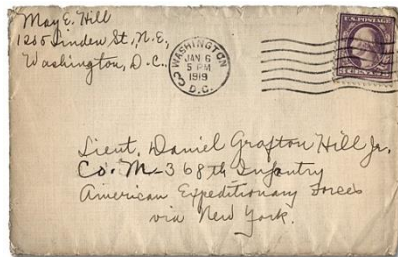 May E. Hill
1205 Linden St., N.E.,
Washington, D.C.
WASHINGTON
JAN 6
5 PM
1919
D.C.
U.S. POSTAGE
Lieut. Daniel Grafton Hill Jr.
Co. M-368th Infantry
American Expeditionary Forces
via New York.